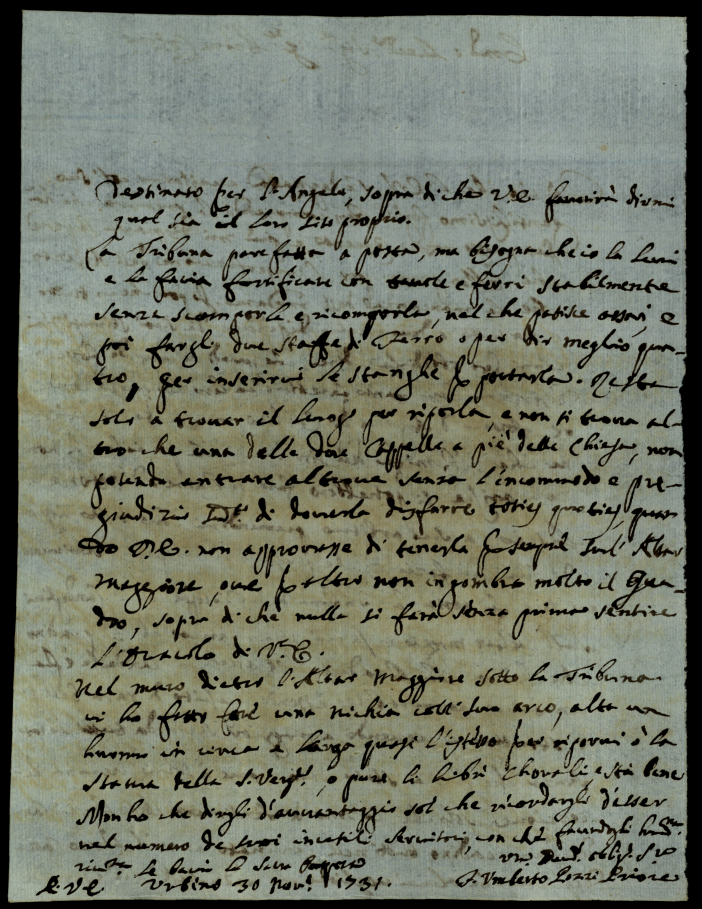 Destinato per l'Angelo, sopra di che V.E. favorirà dirmi
qual sia il loro sito proprio.
La Tribuna pare fatta a posta, ma bisogna che io la
e la facia fortificare con tavole e ferri stabilmente
senza scomporla e ricomporla, nel che patisce assai, e
poi fargli due staffe di Ferro o per dir meglio quat-
tro, per inserirvi le stanghe p portarla. Resta
solo a trovar il luogo per riporla, e non si trova al-
tro che una delle due Cappelle a piè della Chiesa, non
potendo entrare altrove senza l'incommodo e pre-
giudizio di doverla disfarre toties quoties, quan-
do V.E. non approvasse di tenerla p sempre sull'Altar
maggiore, ove p altro non ingombra molto il Qua-
dro, sopra di che nulla si farà senza prima sentire
l'Oracolo di V.E.
Nel muro dietro l'Altar Maggiore sotto la Tribuna
vi ho fatto fare una nichia coll' suo arco, alta un
huomo in circa e larga quasi l'istesso per riporvi ò la
statua della S. Verg.e, o pure li libri Chorali, e stà bene
Non ho che dirgli d'avvantaggio sol che ricordargli d'esser
nel numero de suoi inutili servitori, con che facendogli
le bacio la Sacra
D. V. E. Urbino 30 Nov. 1731.
F. Umberto Priore